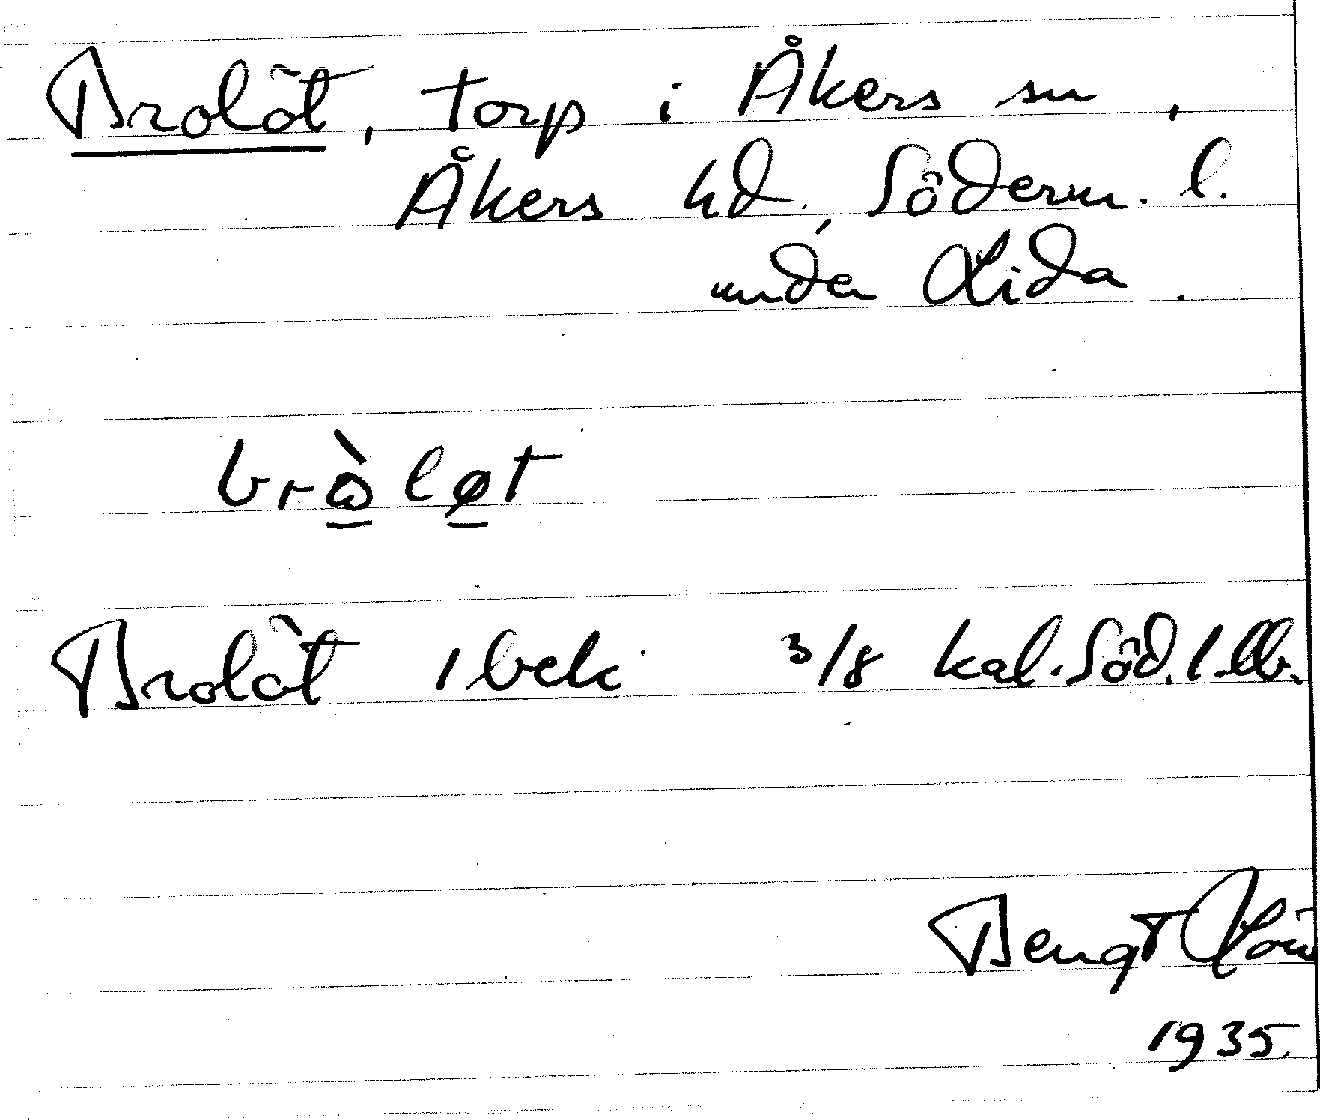 Brolöt, torp i Åkers sn,
Åkers hd, Söderm. l.
under Lida.
bròløt
Brolöt 1 bek 3/8 kal. Söd. l.
Bengt
1935.